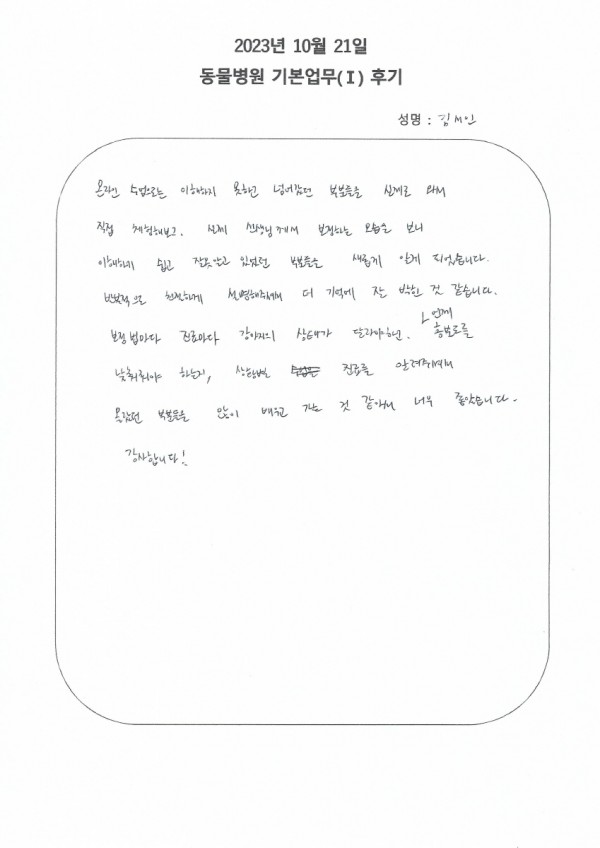 2023년 10월 21일
동물병원 기본업무(I) 후기
성명 : 김서인
온라인 수업으로는 이해하지 못하고 넘어갔던 부분들을 실제로 와서
직접 체험해보고, 실제 선생님께서 보정하는 모습을 보니
이해하기 쉽고 잘못알고 있었던 부분들을 새롭게 알게 되었습니다.
반복적으로 친절하게 설명해주셔서 더 기억에 잘 박힌 것 같습니다.
보정법마다 진료마다 강아지의 상태가 달라야하면, 언제
홍보로를
낮춰줘야 하는지, 상황별 진료를 알려주셔서
몰랐던 부분들을 많이 배우고 가는 것 같아서 너무 좋았습니다.
감사합니다!